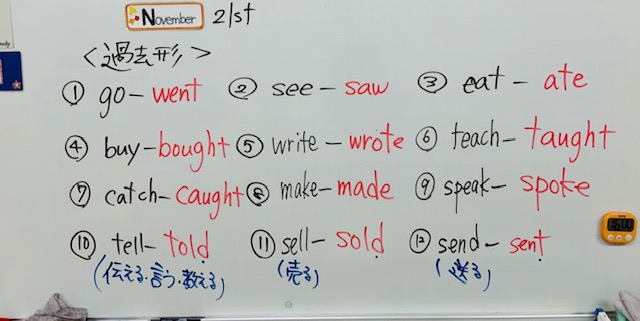 November 21st
<過去形>
① go - went ② see - saw ③ eat - ate
④ buy - bought ⑤ write - wrote ⑥ teach - taught
⑦ catch - caught ⑧ make - made ⑨ speak - spoke
⑩ tell - told ⑪ sell - sold ⑫ send - sent
(伝える・言う・教える) (売る) (送る)